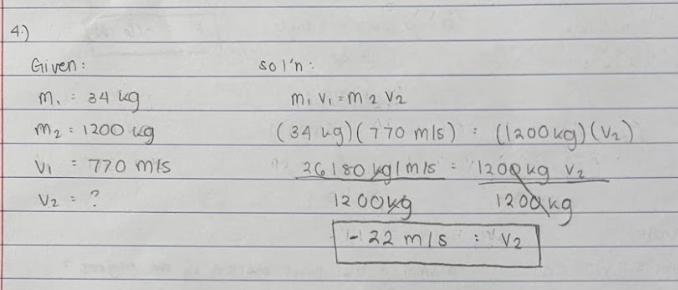 4.)
Given:
m₁ = 34 kg
m₂ = 1200 kg
v₁ = 770 m/s
v₂ = ?
sol'n:
m₁ v₁ = m₂ v₂
(34 kg)(770 m/s) = (1200kg)(v₂)
26180 kg/m/s = 1200 kg v₂
1200kg 1200kg
-22 m/s = v₂